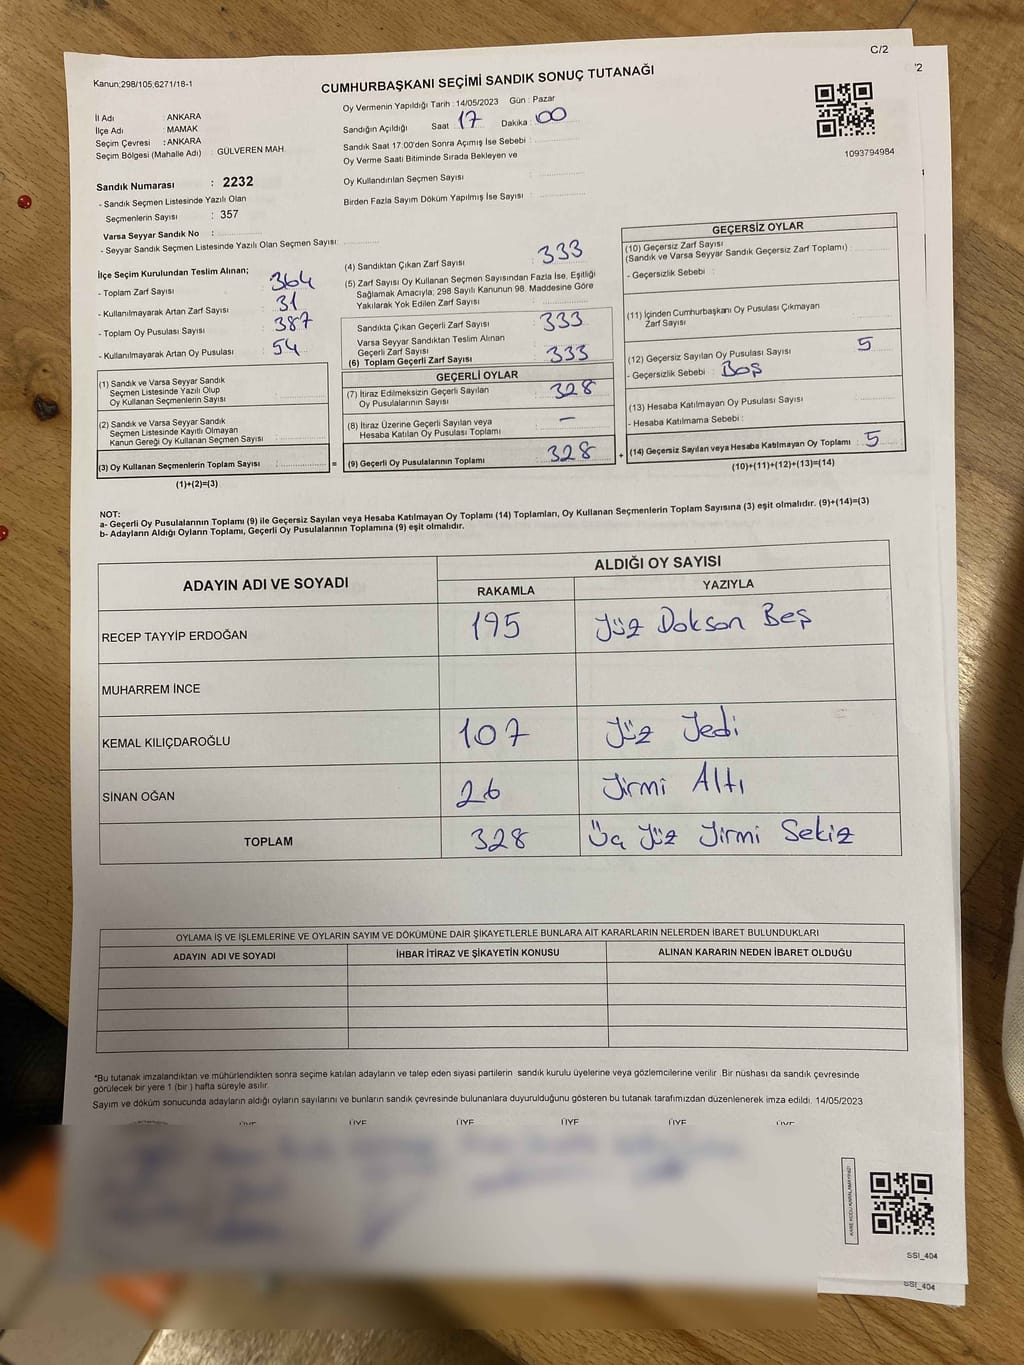 C/2
'2
Kanun;298/105,6271/18-1
CUMHURBAŞKANI SEÇİMİ SANDIK SONUÇ TUTANAĞI
İl Adı : ANKARA
İlçe Adı : MAMAK
Seçim Çevresi : ANKARA
Seçim Bölgesi (Mahalle Adı) : GÜLVEREN MAH.
Oy Vermenin Yapıldığı Tarih : 14/05/2023 Gün : Pazar
Sandığın Açıldığı Saat 17 Dakika : 00
Sandık Saat 17:00'den Sonra Açımış İse Sebebi :
Oy Verme Saati Bitiminde Sırada Bekleyen ve
Oy Kullandırılan Seçmen Sayısı :
Birden Fazla Sayım Döküm Yapılmış İse Sayısı :
1093794984
Sandık Numarası : 2232
- Sandık Seçmen Listesinde Yazılı Olan
Seçmenlerin Sayısı : 357
Varsa Seyyar Sandık No :
- Seyyar Sandık Seçmen Listesinde Yazılı Olan Seçmen Sayısı:
İlçe Seçim Kurulundan Teslim Alınan;
- Toplam Zarf Sayısı : 364
- Kullanılmayarak Artan Zarf Sayısı : 31
- Toplam Oy Pusulası Sayısı : 387
- Kullanılmayarak Artan Oy Pusulası : 54
(1) Sandık ve Varsa Seyyar Sandık
Seçmen Listesinde Yazılı Olup
Oy Kullanan Seçmenlerin Sayısı :
(2) Sandık ve Varsa Seyyar Sandık
Seçmen Listesinde Kayıtlı Olmayan
Kanun Gereği Oy Kullanan Seçmen Sayısı :
(3) Oy Kullanan Seçmenlerin Toplam Sayısı :
(1)+(2)=(3)
=
(4) Sandıktan Çıkan Zarf Sayısı : 333
(5) Zarf Sayısı Oy Kullanan Seçmen Sayısından Fazla İse, Eşitliği
Sağlamak Amacıyla; 298 Sayılı Kanunun 98. Maddesine Göre
Yakılarak Yok Edilen Zarf Sayısı :
Sandıkta Çıkan Geçerli Zarf Sayısı : 333
Varsa Seyyar Sandıktan Teslim Alınan
Geçerli Zarf Sayısı :
(6) Toplam Geçerli Zarf Sayısı : 333
GEÇERLİ OYLAR
(7) İtiraz Edilmeksizin Geçerli Sayılan
Oy Pusulalarının Sayısı : 328
(8) İtiraz Üzerine Geçerli Sayılan veya
Hesaba Katılan Oy Pusulası Toplamı : —
(9) Geçerli Oy Pusulalarının Toplamı : 328
+
GEÇERSİZ OYLAR
(10) Geçersiz Zarf Sayısı
(Sandık ve Varsa Seyyar Sandık Geçersiz Zarf Toplamı) :
- Geçersizlik Sebebi :
(11) İçinden Cumhurbaşkanı Oy Pusulası Çıkmayan
Zarf Sayısı :
(12) Geçersiz Sayılan Oy Pusulası Sayısı : 5
- Geçersizlik Sebebi : Boş
(13) Hesaba Katılmayan Oy Pusulası Sayısı :
- Hesaba Katılmama Sebebi :
(14) Geçersiz Sayılan veya Hesaba Katılmayan Oy Toplamı : 5
(10)+(11)+(12)+(13)=(14)
NOT:
a- Geçerli Oy Pusulalarının Toplamı (9) ile Geçersiz Sayılan veya Hesaba Katılmayan Oy Toplamı (14) Toplamları, Oy Kullanan Seçmenlerin Toplam Sayısına (3) eşit olmalıdır. (9)+(14)=(3)
b- Adayların Aldığı Oyların Toplamı, Geçerli Oy Pusulalarının Toplamına (9) eşit olmalıdır.
ADAYIN ADI VE SOYADI ALDIĞI OY SAYISI
RAKAMLA YAZIYLA
RECEP TAYYİP ERDOĞAN 195 Yüz Dokson Beş
MUHARREM İNCE
KEMAL KILIÇDAROĞLU 107 Yüz Yedi
SİNAN OĞAN 26 Yirmi Altı
TOPLAM 328 Üç Yüz Yirmi Sekiz
OYLAMA İŞ VE İŞLEMLERİNE VE OYLARIN SAYIM VE DÖKÜMÜNE DAİR ŞİKAYETLERLE BUNLARA AİT KARARLARIN NELERDEN İBARET BULUNDUKLARI
ADAYIN ADI VE SOYADI İHBAR İTİRAZ VE ŞİKAYETİN KONUSU ALINAN KARARIN NEDEN İBARET OLDUĞU
*Bu tutanak imzalandıktan ve mühürlendikten sonra seçime katılan adayların ve talep eden siyasi partilerin sandık kurulu üyelerine veya gözlemcilerine verilir .Bir nüshası da sandık çevresinde
görülecek bir yere 1 (bir ) hafta süreyle asılır.
Sayım ve döküm sonucunda adayların aldığı oyların sayılarını ve bunların sandık çevresinde bulunanlara duyurulduğunu gösteren bu tutanak tarafımızdan düzenlenerek imza edildi. 14/05/2023
ÜYE ÜYE ÜYE ÜYE ÜYE ÜYE
KARE KODU KARALAMAYINIZ!
SSI_404
SSI_404